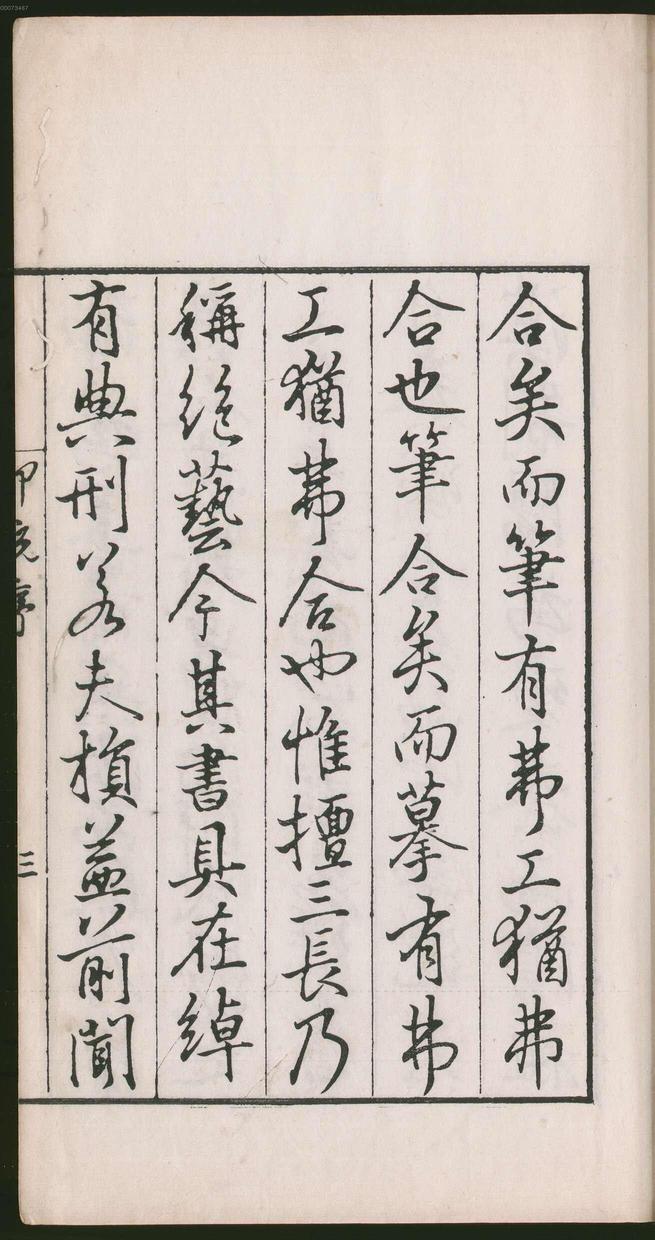 合矣而筆有弗工猶弗
合也筆合矣而摹有弗
工猶弗合也惟擅三長乃
稱絶藝今其書具在綽
有典刑若夫損益前聞
印說序
三
00073467